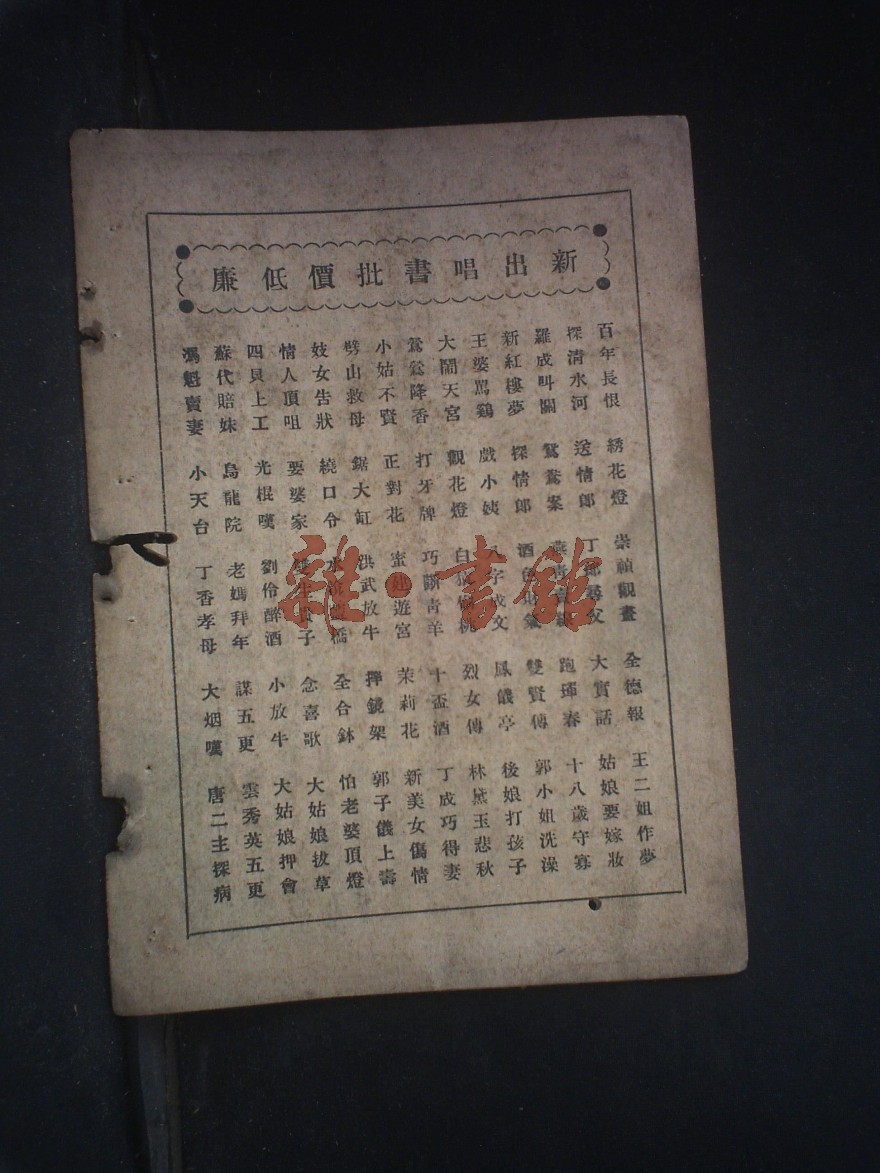 新出唱書批價低廉
百年長恨 綉花燈 崇禎觀畫 全德報 王二姐作夢
探清水河 送情郎 丁郎尋父 大實話 姑娘要嫁妝
羅成叫關 鴛鴦案 燕青賣線 跑琿春 十八歲守寡
新紅樓夢 探情郎 酒色財氣 雙賢傳 郭小姐洗澡
王婆罵鷄 戲小姨 字成文 鳳儀亭 後娘打孩子
大鬧天宮 觀花燈 白猿偷桃 烈女傳 林黛玉悲秋
鶯鶯降香 打牙牌 巧斷青羊 十盃酒 丁成巧得妻
小姑不賢 正對花 蜜遊宮 茉莉花 新美女傷情
劈山救母 鋸大缸 洪武放牛 摔鏡架 郭子儀上壽
妓女告狀 繞口令 水橋 全合鉢 怕老婆頂燈
情人頂咀 要婆家 子 念喜歌 大姑娘拔草
四貝上工 光棍嘆 劉伶醉酒 小放牛 大姑娘押會
蘇代賠妹 烏龍院 老媽拜年 謀五更 雲秀英五更
馮魁賣妻 小天台 丁香孝母 大烟嘆 唐二主探病
雜·書館